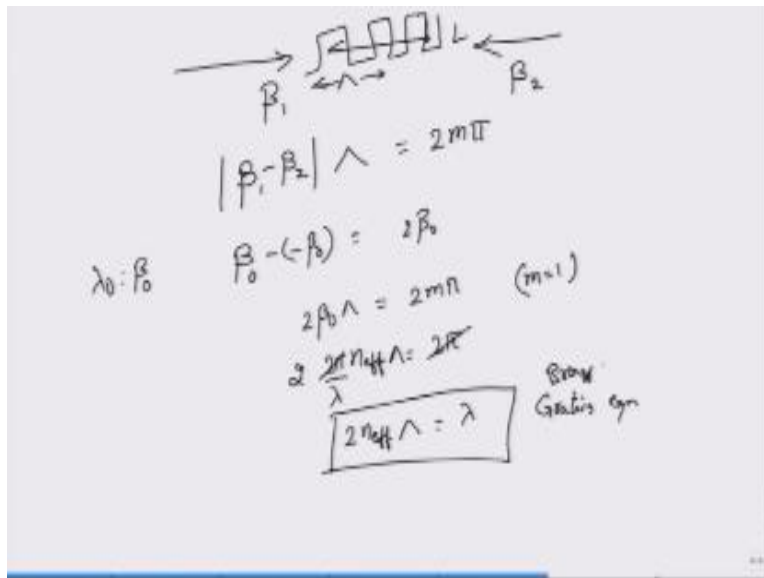 L
Λ
β₁ β₂
|β₁-β₂| Λ = 2mπ
λ₀: β₀ β₀-(-β₀) = 2β₀
2β₀Λ = 2mπ (m=1)
2 2π/λ neff Λ = 2π
2neff Λ = λ
Bragg
Grating eqn